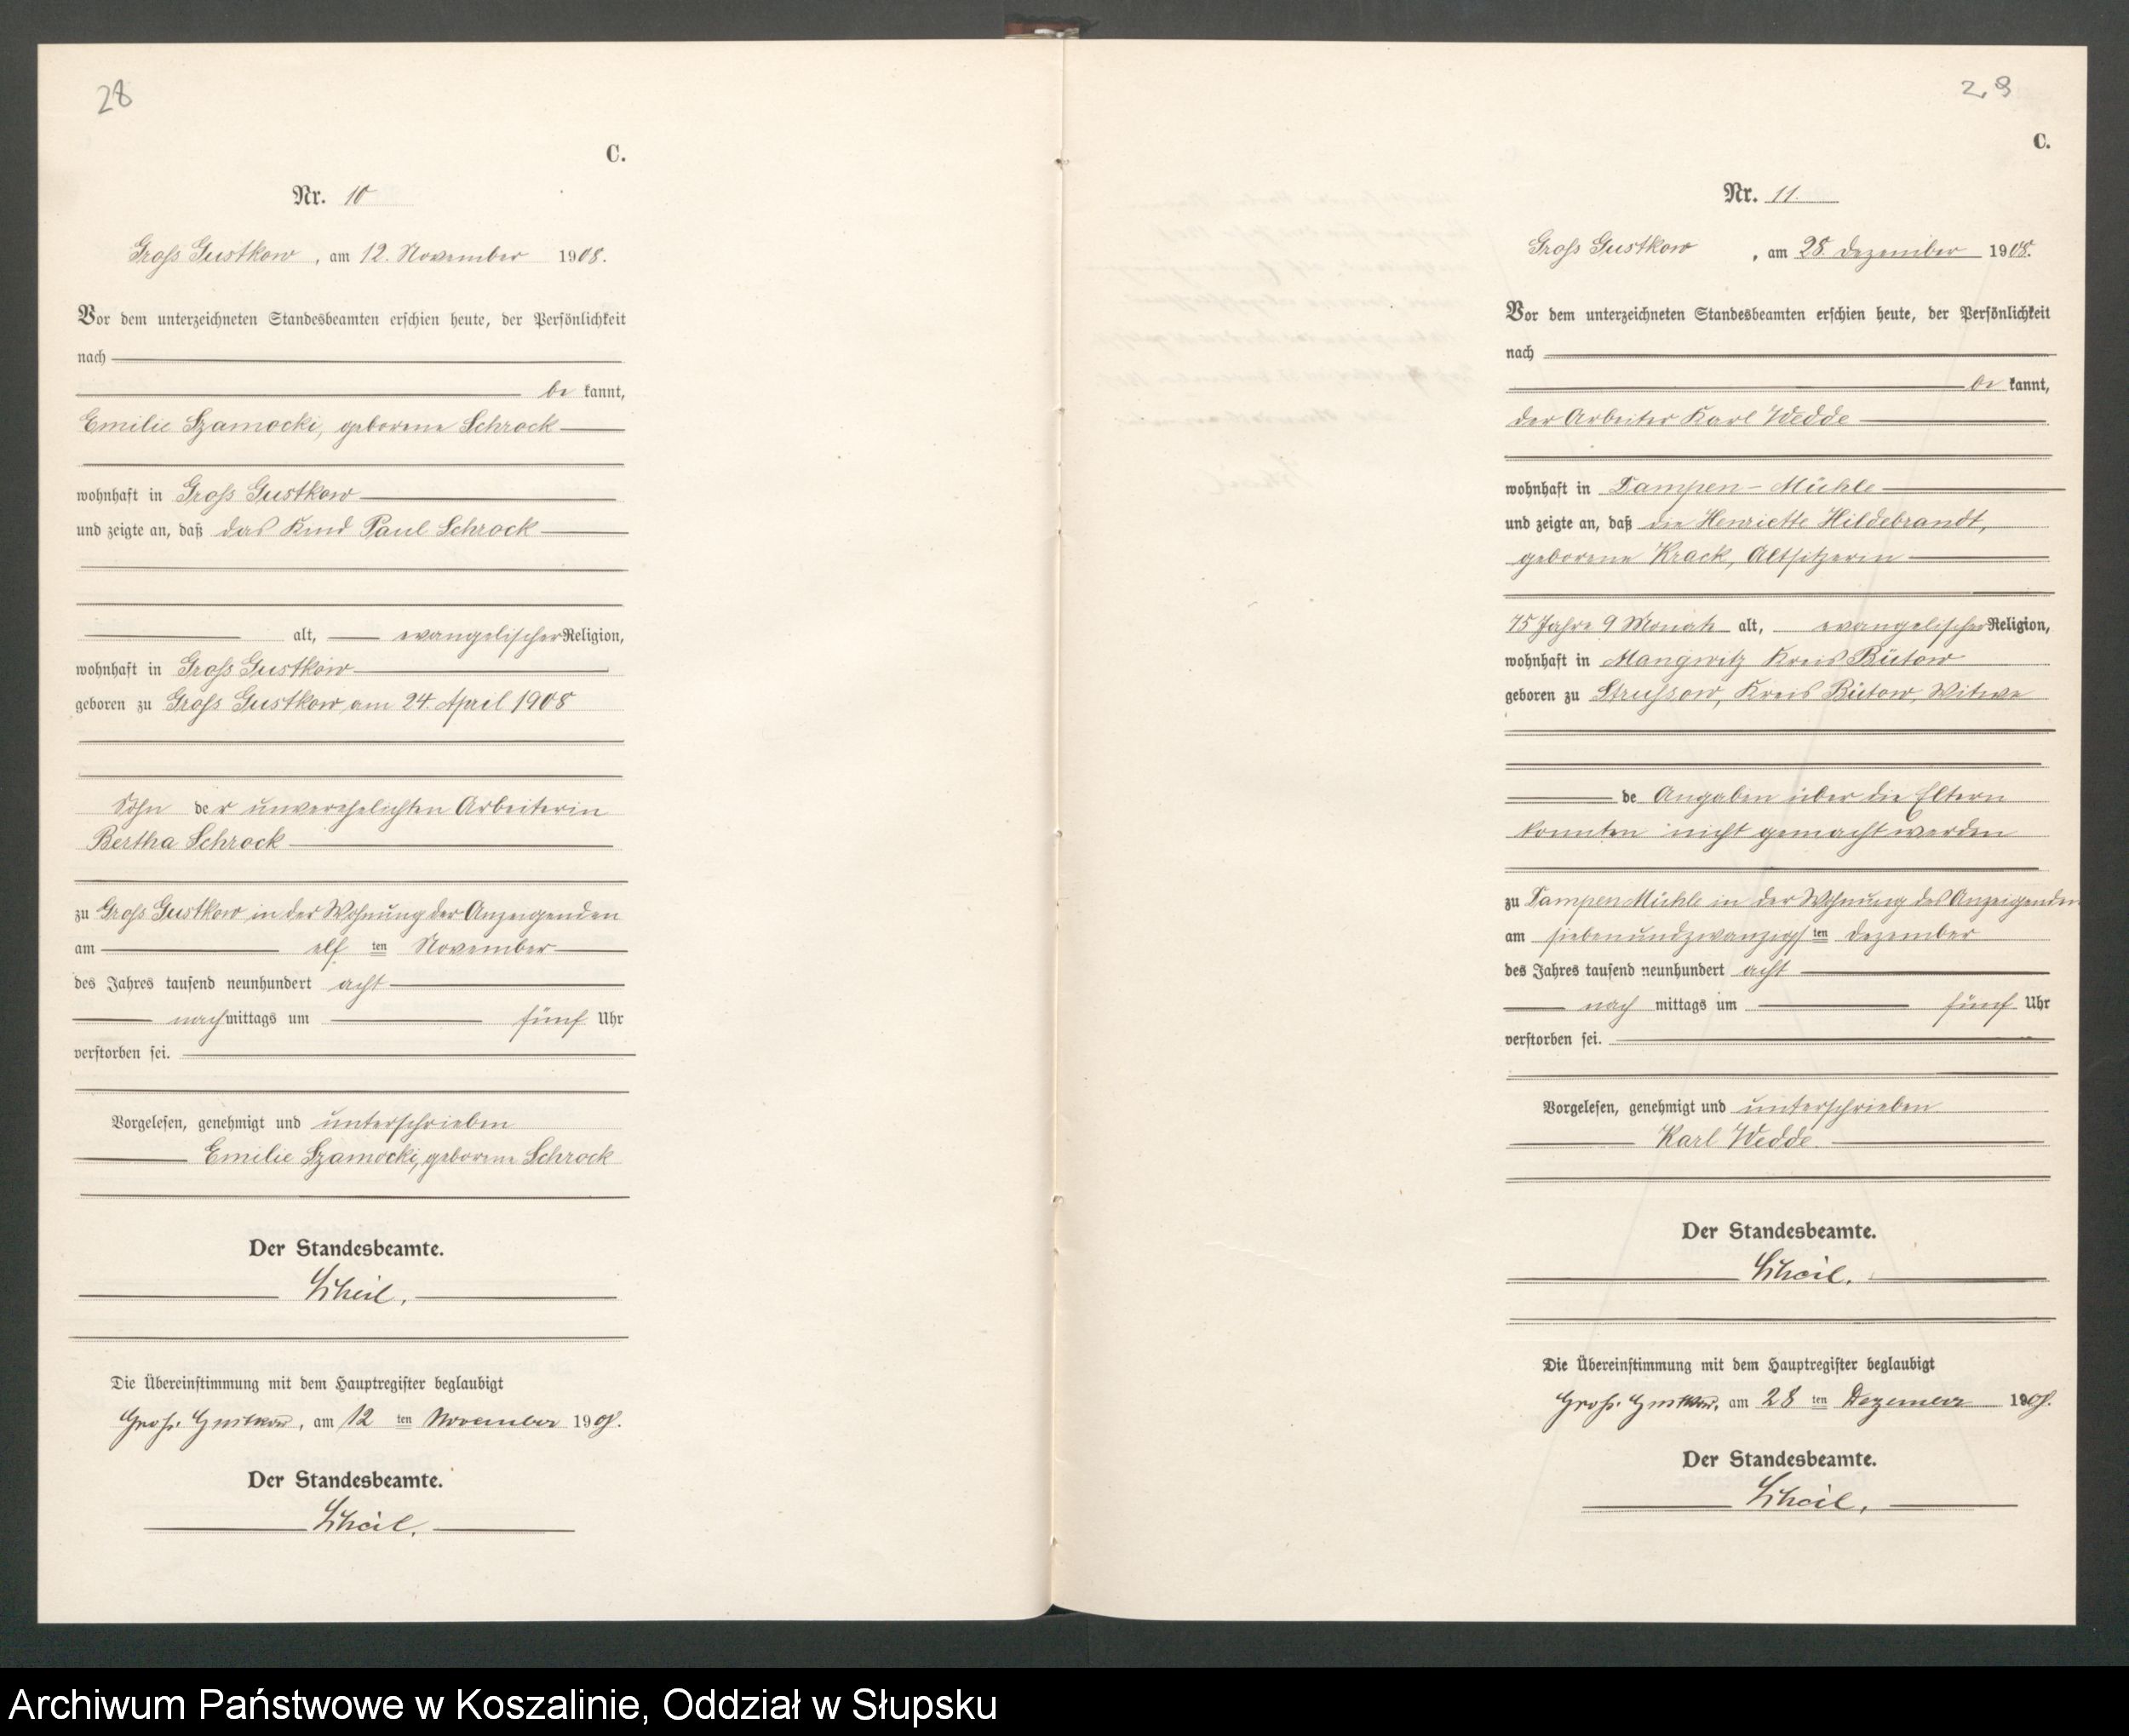 28
C.
Nr. 10
Groß Gustkow, am 12. November 1908.
Vor dem unterzeichneten Standesbeamten erschien heute, der Persönlichkeit
nach
be kannt,
Emilie Szamocki, geborene Schrock
wohnhaft in Groß Gustkow
und zeigte an, daß das Kind Paul Schrock
alt, evangelischer Religion,
wohnhaft in Groß Gustkow
geboren zu Groß Gustkow am 24. April 1908
Sohn der unverehelichten Arbeiterin
Bertha Schrock
zu Groß Gustkow in der Wohnung der Anzeigenden
am elf ten November
des Jahres tausend neunhundert acht
nachmittags um fünf Uhr
verstorben sei.
Vorgelesen, genehmigt und unterschrieben
Emilie Szamocki, geborene Schrock
Der Standesbeamte.
Scheil.
Die Übereinstimmung mit dem Hauptregister beglaubigt
Groß. Gustkow, am 12 ten November 1908.
Der Standesbeamte.
Scheil.
29
C.
Nr. 11.
Groß Gustkow, am 28. Dezember 1908.
Vor dem unterzeichneten Standesbeamten erschien heute, der Persönlichkeit
nach
be kannt,
der Arbeiter Karl Wedde
wohnhaft in Dampen-Mühle
und zeigte an, daß die Henriette Hildebrandt,
geborene Krack, Altsitzerin
75 Jahre 9 Monate alt, evangelischer Religion,
wohnhaft in Mangwitz Kreis Bütow
geboren zu Strussow, Kreis Bütow, Witwe
de Angaben über die Eltern
konnten nicht gemacht werden
zu Dampen Mühle in der Wohnung des Anzeigenden
am siebenundzwanzigs ten Dezember
des Jahres tausend neunhundert acht
nach mittags um fünf Uhr
verstorben sei.
Vorgelesen, genehmigt und unterschrieben
Karl Wedde.
Der Standesbeamte.
Scheil.
Die Übereinstimmung mit dem Hauptregister beglaubigt
Groß. Gustkow, am 28 ten Dezember 1908.
Der Standesbeamte.
Scheil.
Archiwum Państwowe w Koszalinie, Oddział w Słupsku